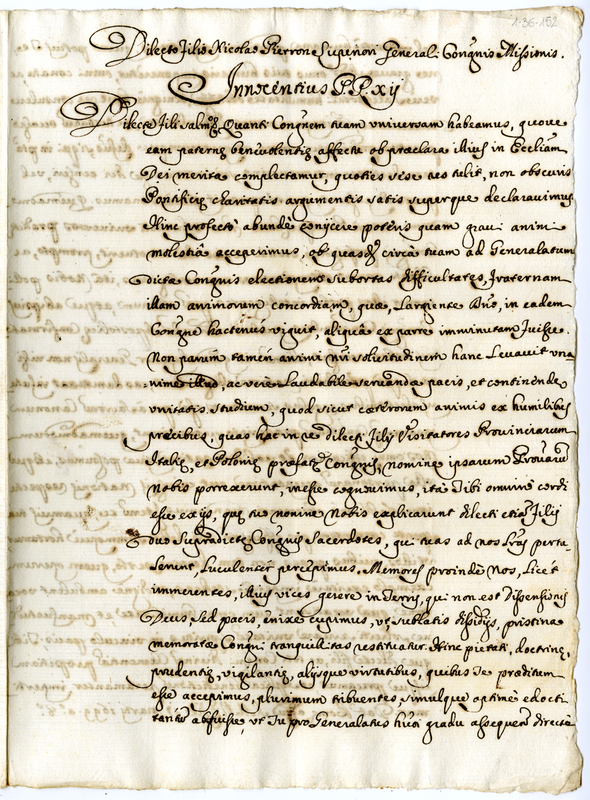 1-36-152
Dilecto filio Nicolao Pierron Superiori Generali Congnis Missionis.
Innocentius P.P. xij
Dilecte fili salm̃ &. Quanti Congnem tuam universam habeamus, quove
eam paternę benevolentię affectu ob pręclara illius in Eccliam
Dei merita complectamur, quoties sese res tulit, non obscuris
Pontificię charitatis argumentis satis superque declaravimus.
Hinc profectò abundè conijcere poteris quam gravi animi
molestiâ acceperimus, ob quasdã circà tuam ad Generalatum
dictæ Congnis electionem subortas difficultates, fraternam
illam animorum concordiam, quæ, Largiente Dño, in eadem
Congñe hactenùs viguit, aliquâ ex parte imminutam fuisse.
Non parum tamèn animi nri sollicitudinem hanc Levavit una-
nime illud, ac verè Laudabile servandæ pacis, et continendę
unitatis studium, quod sicut cæterorum animis ex humilibus
precibus, quas hac in re dilecti filij Visitatores Provinciarum
Italię, et Polonię præfatę Congnis, nomine ipsarum Provarũ
nobis porrexerunt, inesse cognovimus, ità Tibi omninò cordi
esse ex ijs, quę tuo nomine Nobis explicarunt dilecti etiã filij
duo Supradictę Congnis Sacerdotes, qui tuas ad nos Lras perta-
lerunt, Luculentèr percepimus. Memores proinde Nos, Licèt
immerentes, illius vices gerere in Terris, qui non est Dissensionis
Deus, sed pacis, enixè cupimus, ut sublatis dissidijs, pristina
memoratæ Congni tranquillitas restituatur. Hinc pietati, doctrinę,
prudentię, vigilantię, alijsque virtutibus, quibus Te præditum
esse accepimus, plurimum tribuentes, simulque optimè edocti
tantũ abfuisse, ut Tu pro Generalatus huiõi gradu assequendo directè